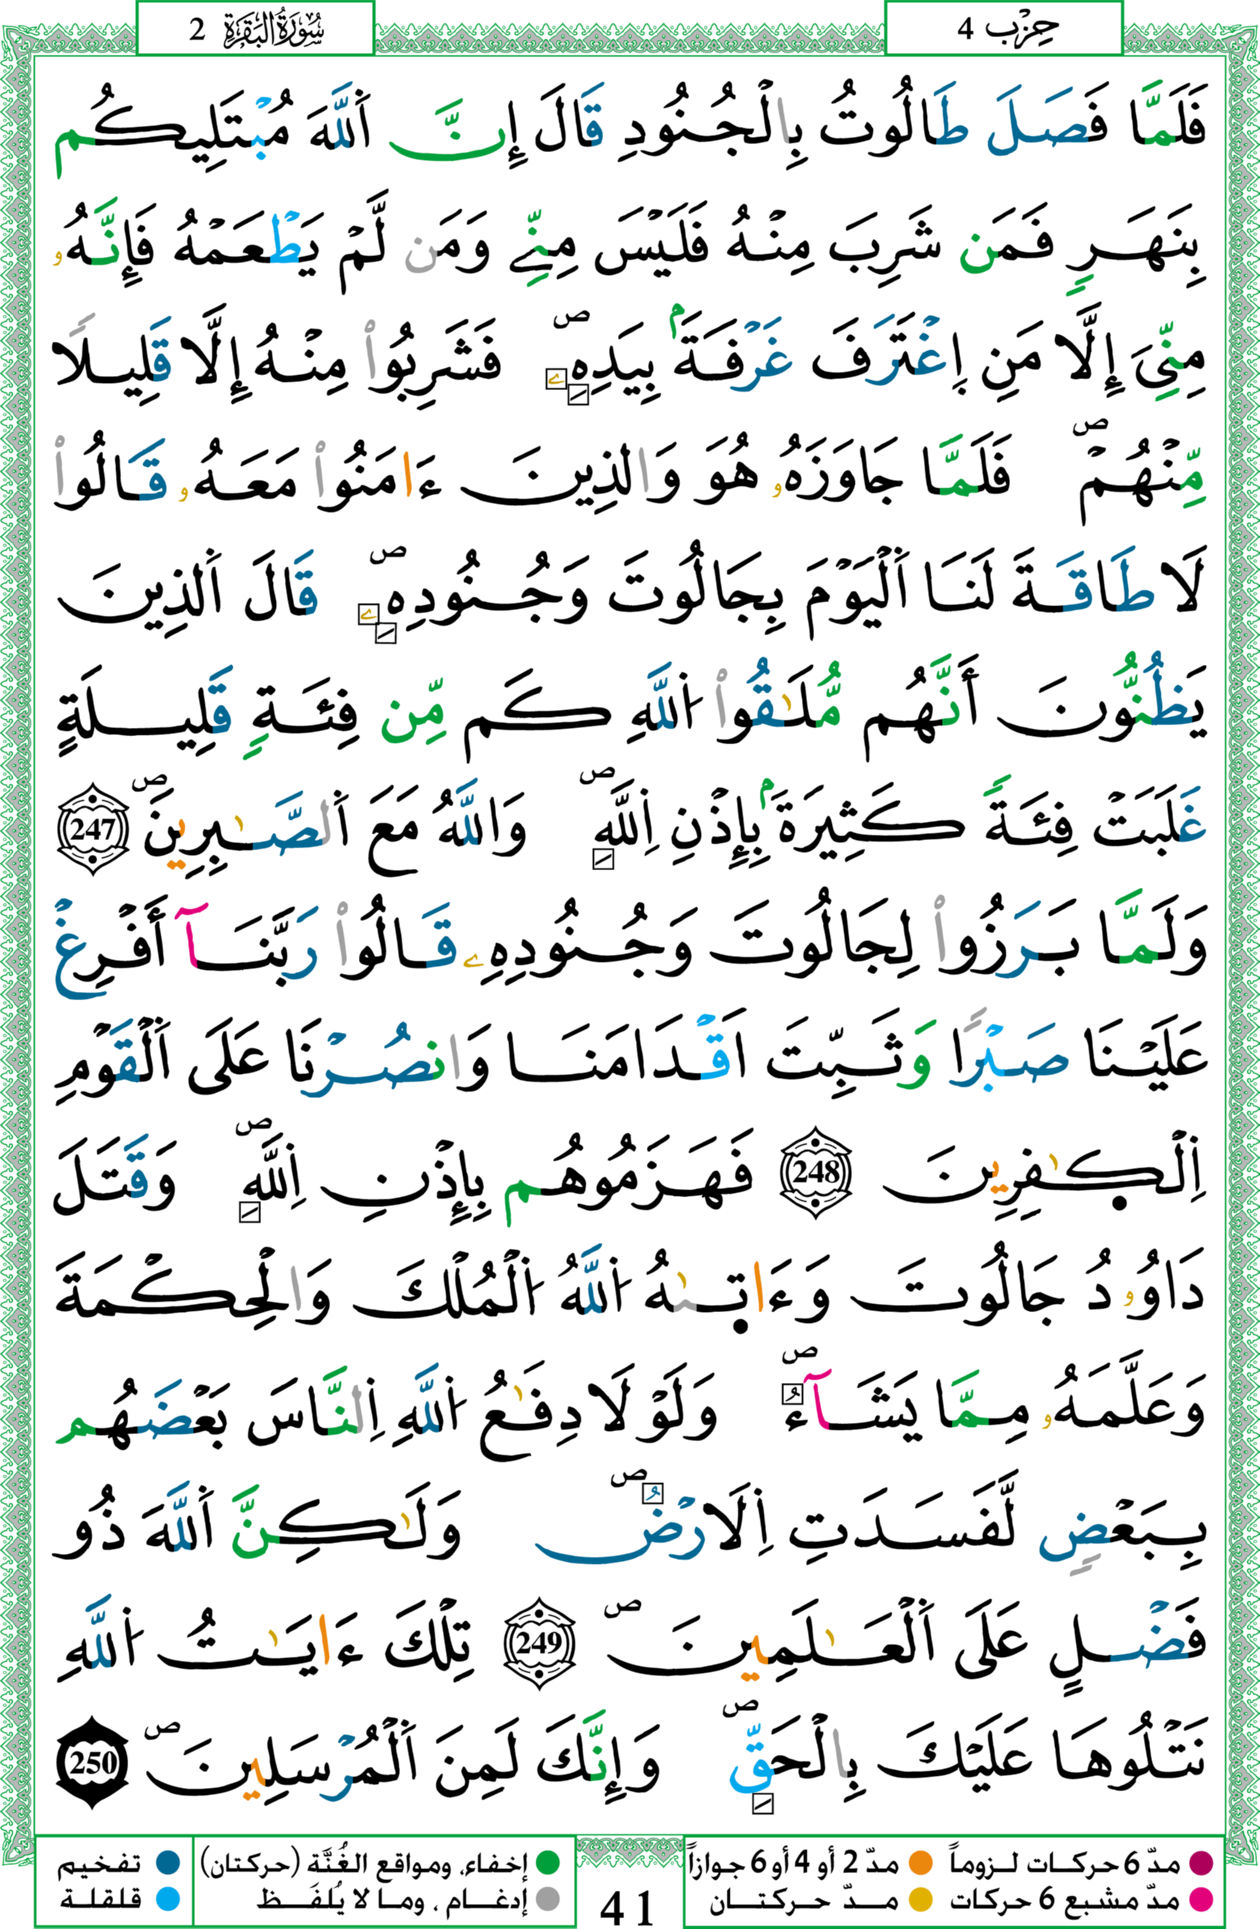 حِزْب 4
سُورَةُ البَقَرَةِ 2
فَلَمَّا فَصَلَ طَالُوتُ بِالْجُنُودِ قَالَ إِنَّ اَللَّهَ مُبْتَلِيكُم
بِنَهَرٍ فَمَن شَرِبَ مِنْهُ فَلَيْسَ مِنِّے وَمَن لَّمْ يَطْعَمْهُ فَإِنَّهُۥ
مِنِّىَ إِلَّا مَنِ اِغْتَرَفَ غَرْفَةَۢ بِيَدِهِۦ ص فَشَرِبُواْ مِنْهُ إِلَّا قَلِيلًا
مِّنْهُمْ ص فَلَمَّا جَاوَزَهُۥ هُوَ وَالذِينَ ءَامَنُواْ مَعَهُۥ قَالُواْ
لَا طَاقَةَ لَنَا اَلْيَوْمَ بِجَالُوتَ وَجُنُودِهِۦ ص قَالَ اَلذِينَ
يَظُنُّونَ أَنَّهُم مُّلَٰقُواْ اُللَّهِ كَم مِّن فِئَةٍ قَلِيلَةٍ
غَلَبَتْ فِئَةً كَثِيرَةَۢ بِإِذْنِ اِللَّهِ ص وَاللَّهُ مَعَ اَلصَّٰبِرِينَ ص 247
وَلَمَّا بَرَزُواْ لِجَالُوتَ وَجُنُودِهِۦ قَالُواْ رَبَّنَآ أَفْرِغْ
عَلَيْنَا صَبْرًا وَثَبِّتَ اَقْدَامَنَا وَانصُرْنَا عَلَى اَلْقَوْمِ
اِلْكٰفِرِينَ 248 فَهَزَمُوهُم بِإِذْنِ اِللَّهِ ص وَقَتَلَ
دَاوُۥدُ جَالُوتَ وَءَاتٜىٰهُ اُللَّهُ اُلْمُلْكَ وَالْحِكْمَةَ
وَعَلَّمَهُۥ مِمَّا يَشَآءُ ص وَلَوْلَا دِفَٰعُ اُللَّهِ اِلنَّاسَ بَعْضَهُم
بِبَعْضٍ لَّفَسَدَتِ اِلَارْضُ ص وَلَٰكِنَّ اَللَّهَ ذُو
فَضْلٍ عَلَى اَلْعَٰلَمِينَ ص 249 تِلْكَ ءَايَٰتُ اُللَّهِ
نَتْلُوهَا عَلَيْكَ بِالْحَقِّ ص وَإِنَّكَ لَمِنَ اَلْمُرْسَلِينَ ص 250
مدّ 6 حركات لـزوماً مدّ 2 أو 4 أو 6 جوازاً
مدّ مشبع 6 حركات مـدّ حـركـتـان
إخفاء، ومواقع الغُنَّة (حركتان) تفخيم
إدغـام ، ومـا لا يُلفَـظ قلقلة
41